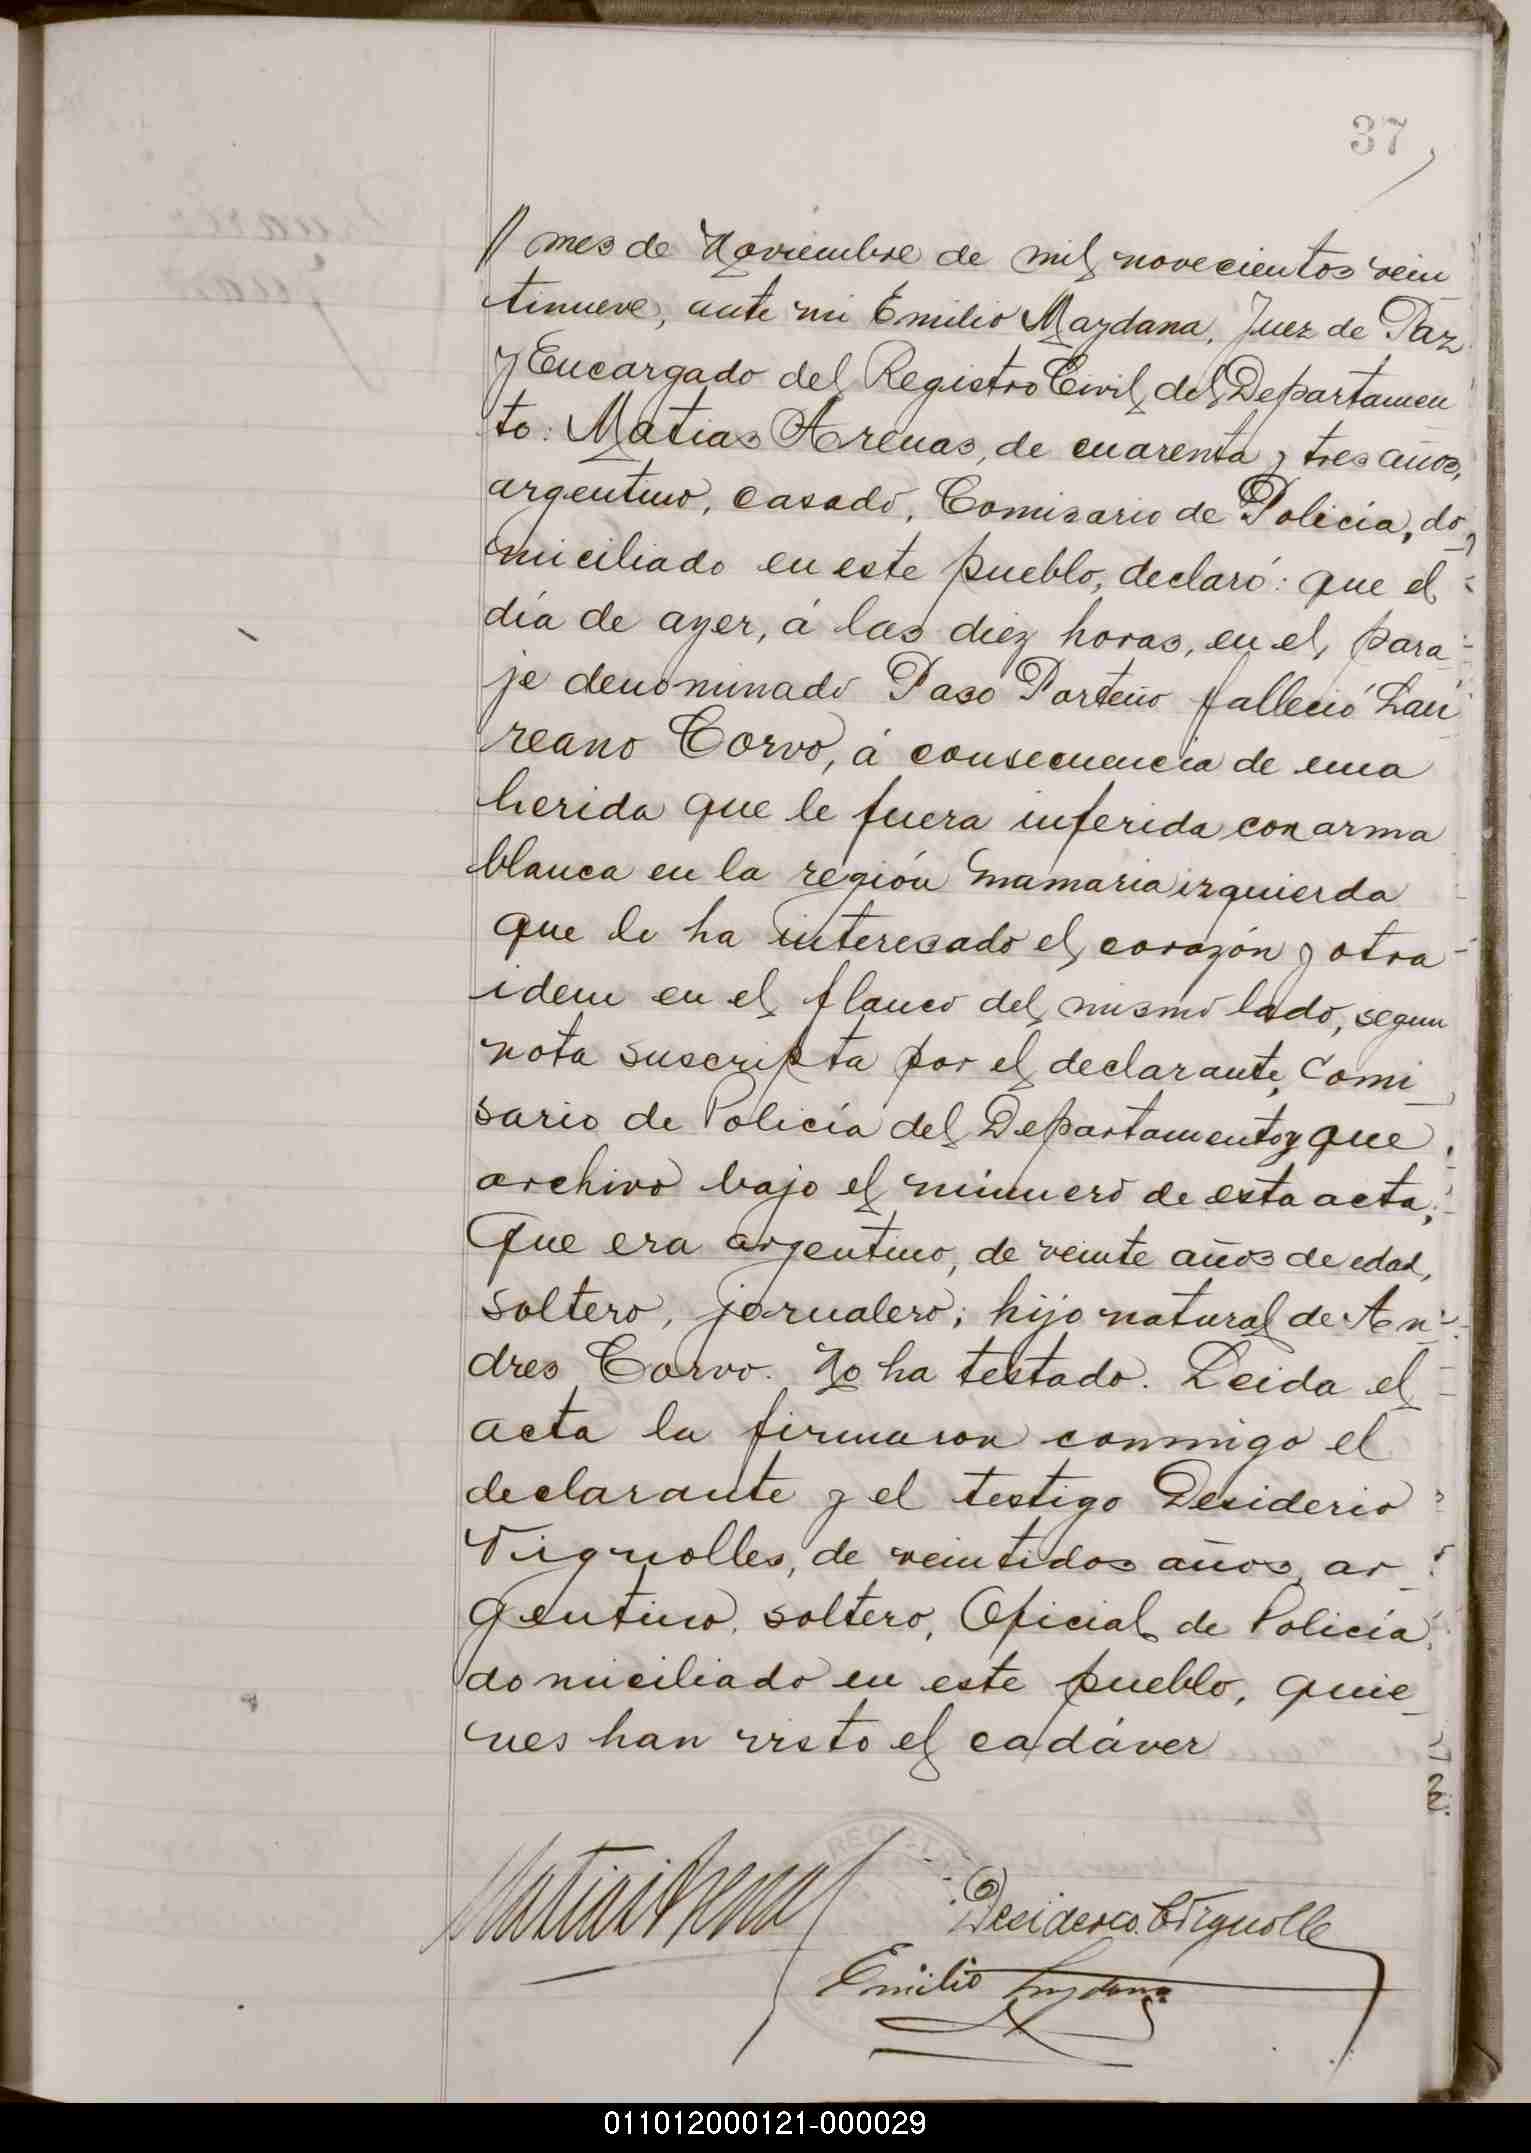 37
// mes de Noviembre de mil novecientos vein
tinueve, ante mi Emilio Maydana, Juez de Paz
y Encargado del Registro Civil del Departamen
to: Matias Arenas, de cuarenta y tres años,
argentino, casado, Comisario de Policía, do
miciliado en este pueblo, declaró: que el
día de ayer, á las diez horas, en el para
je denominado Paso Porteño falleció Lau
reano Corvo, á consecuencia de una
herida que le fuera inferida con arma
blanca en la región mamaria izquierda
que le ha interesado el corazón y otra
idem en el flanco del mismo lado, segun
nota suscripta por el declarante, Comi
sario de Policía del Departamento y que
archivo bajo el número de esta acta;
Que era argentino, de veinte años de edad,
soltero, jornalero; hijo natural de An
dres Corvo. No ha testado. Leida el
acta la firmaron conmigo el
declarante y el testigo Desiderio
Vignolles, de veintidos años, ar
gentino, soltero, Oficial de Policía
domiciliado en este pueblo, quie
nes han visto el cadáver
Matias Arenas
Desiderio Vignolle
Emilio Maydana
011012000121-000029